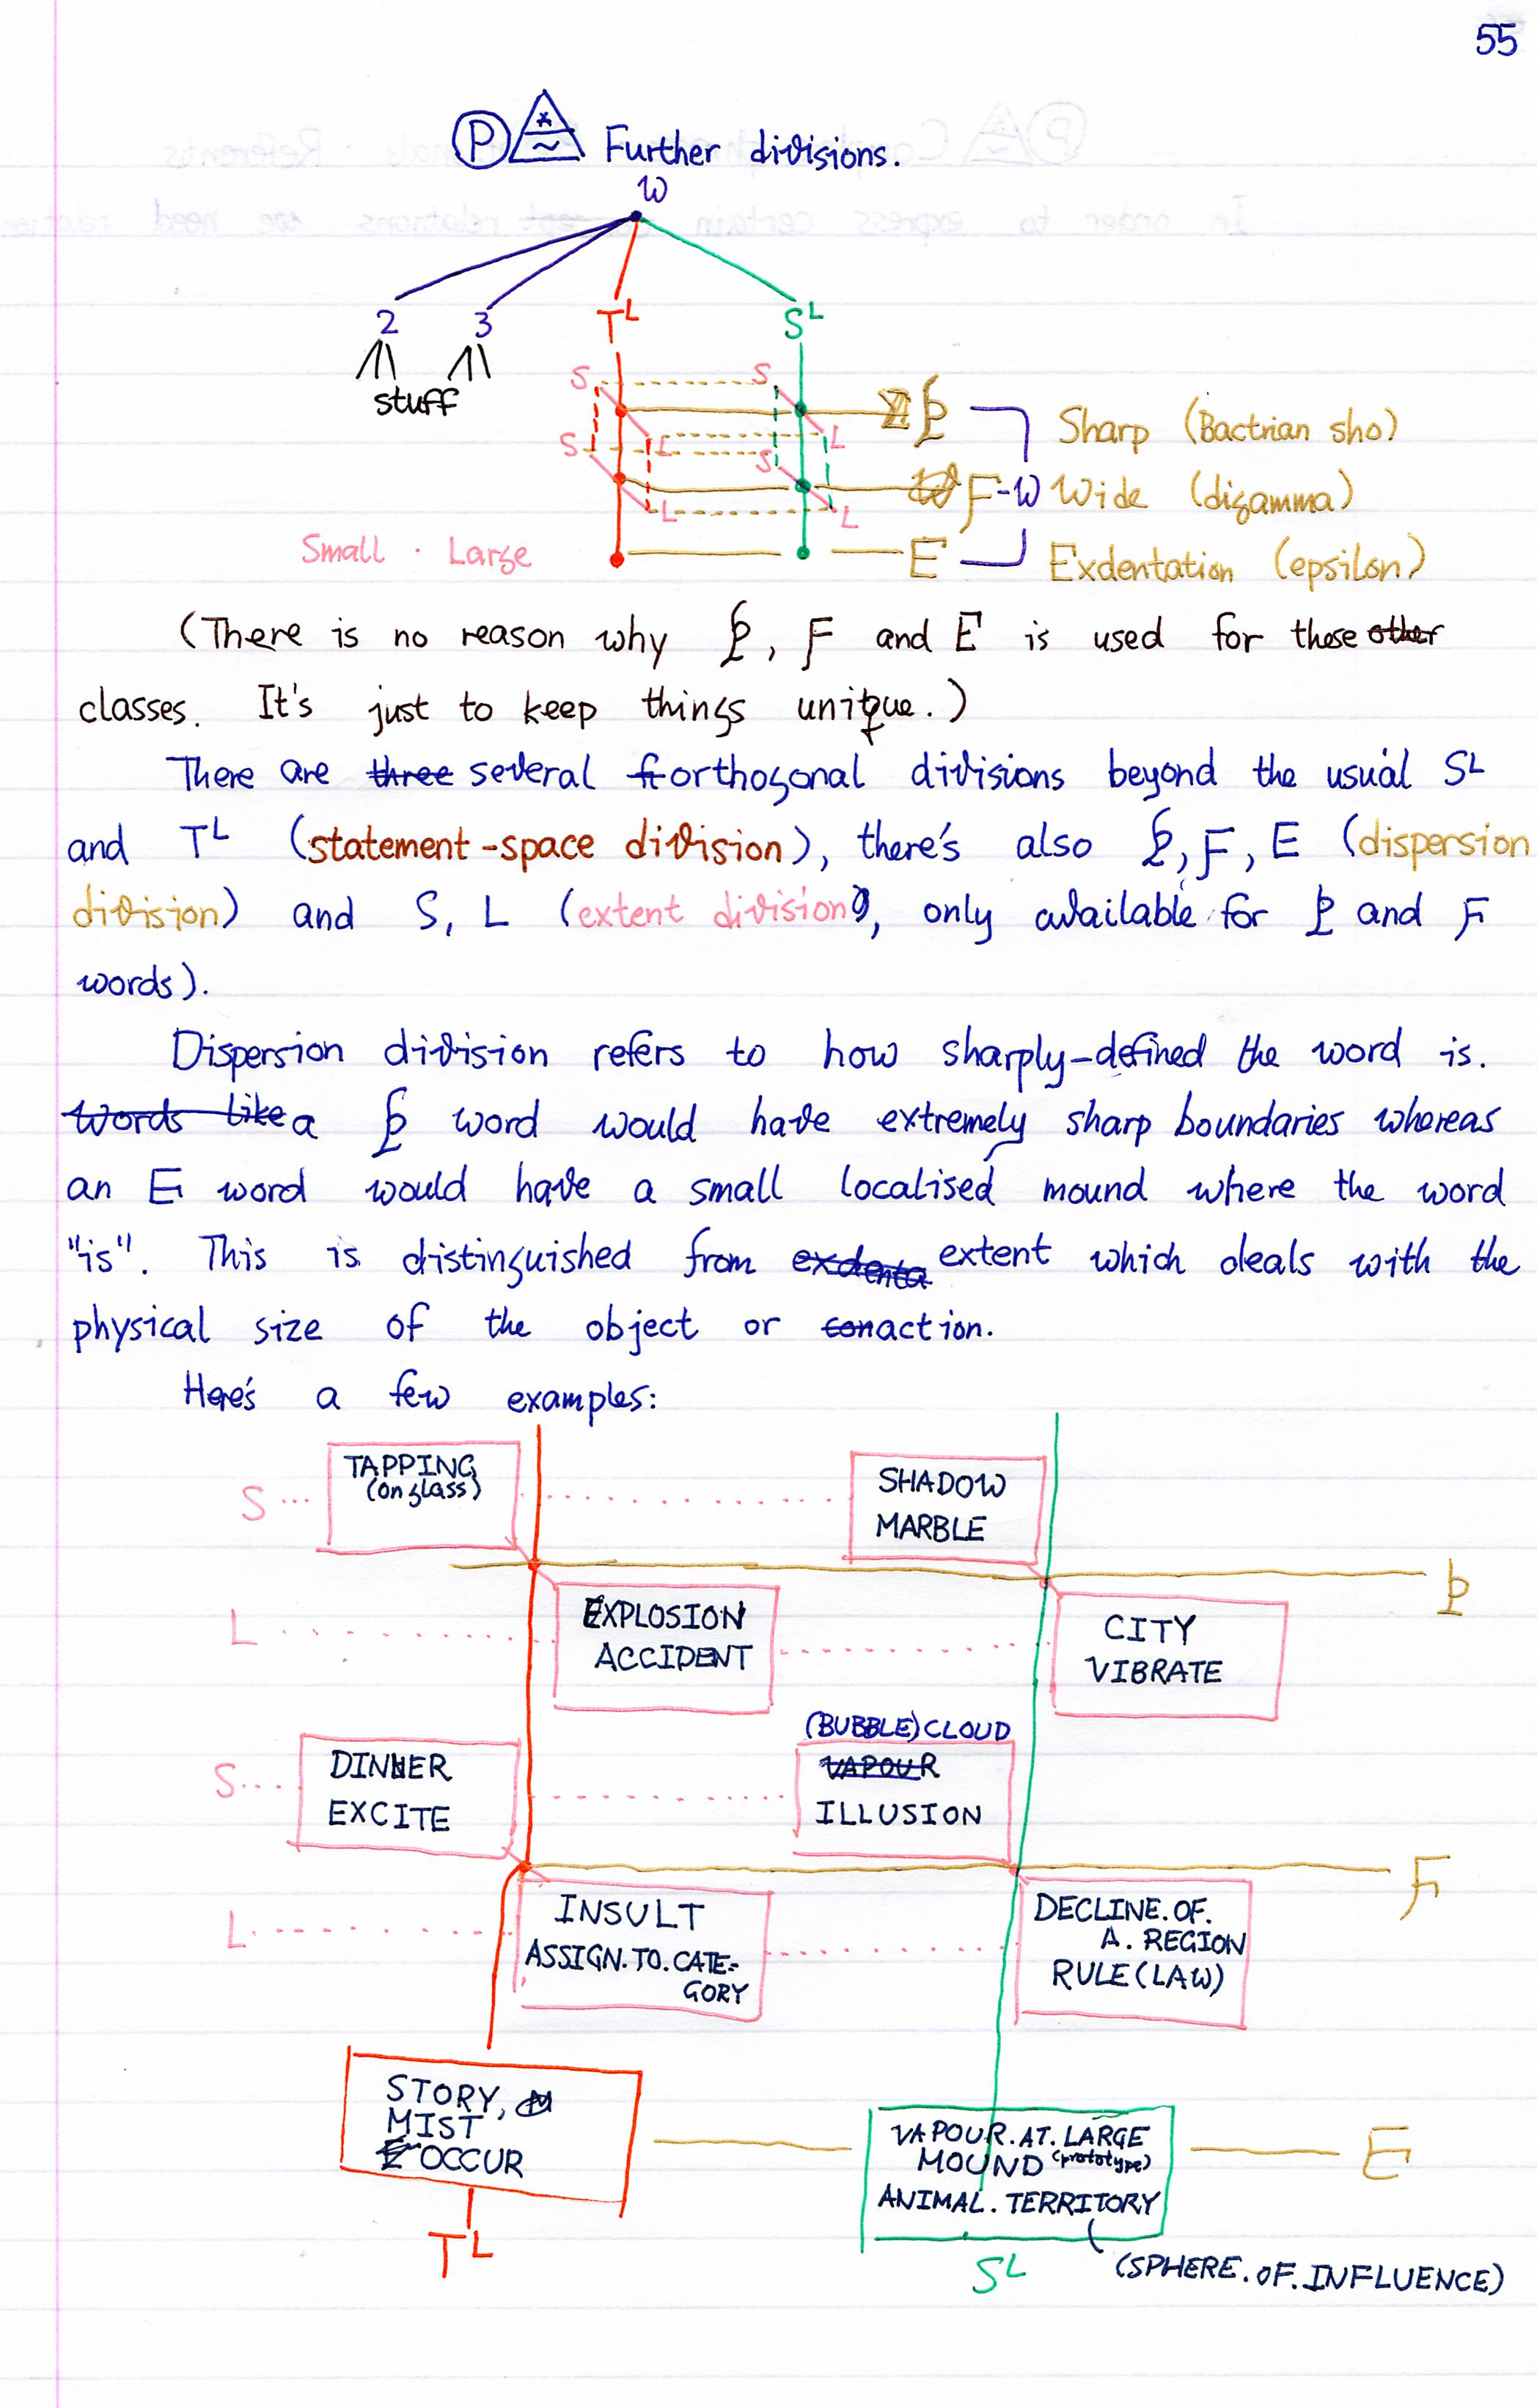 55
Ⓟ Further divisions.
W
2 3 Tᴸ Sᴸ
stuff
S S
L L
S S
L L
Ϸ Sharp (Bactrian sho)
F-W Wide (digamma)
E Exdentation (epsilon)
Small · Large
(There is no reason why Ϸ, F and E is used for these other
classes. It's just to keep things unique.)
There are three several orthogonal divisions beyond the usual Sᴸ
and Tᴸ (statement-space division), there's also Ϸ, F, E (dispersion
division) and S, L (extent division), only available for Ϸ and F
words).
Dispersion division refers to how sharply-defined the word is.
Words like a Ϸ word would have extremely sharp boundaries whereas
an E word would have a small localised mound where the word
"is". This is distinguished from exdenta extent which deals with the
physical size of the object or conaction.
Here's a few examples:
S
TAPPING
(on glass)
SHADOW
MARBLE
Ϸ
L
EXPLOSION
ACCIDENT
CITY
VIBRATE
S
DINNER
EXCITE
(BUBBLE) CLOUD
VAPOUR
ILLUSION
F
L
INSULT
ASSIGN.TO.CATE-
GORY
DECLINE.OF.
A.REGION
RULE (LAW)
STORY,
MIST
OCCUR
VAPOUR.AT.LARGE
MOUND (prototype)
ANIMAL.TERRITORY
E
Tᴸ
Sᴸ
(SPHERE.OF.INFLUENCE)